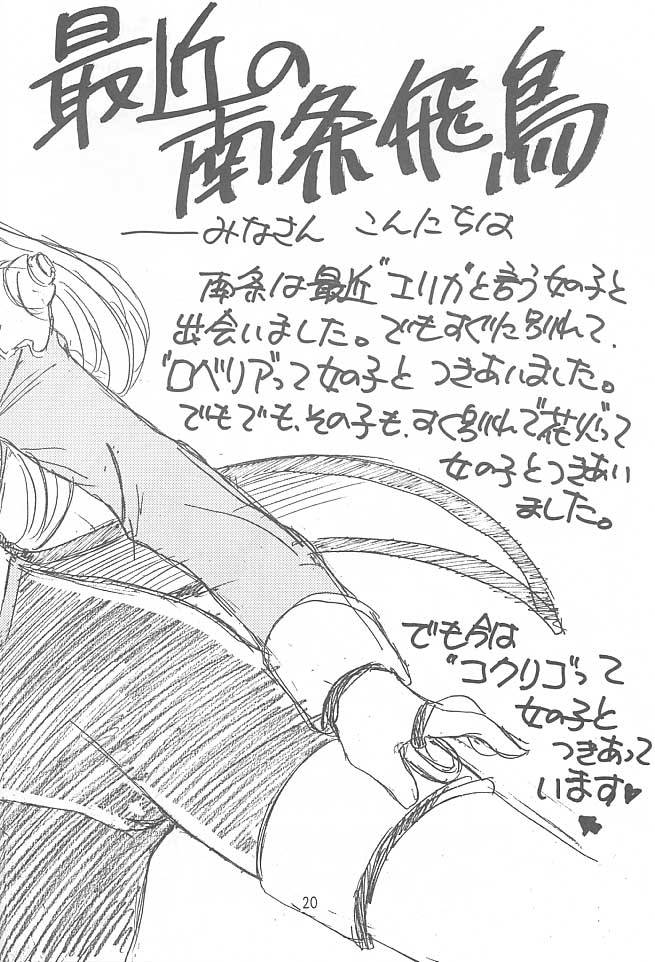 最近の
南条飛鳥
——みなさん こんにちは
南条は最近"エリカ"と言う女の子と
出会いました。でもすぐに別れて、
"ロベリア"って女の子と つきあいました。
でもでも、その子も、すぐ別れて"花火"って
女の子とつきあい
ました。
でも今は
"コクリコ"って
女の子と
つきあって
います♥
20